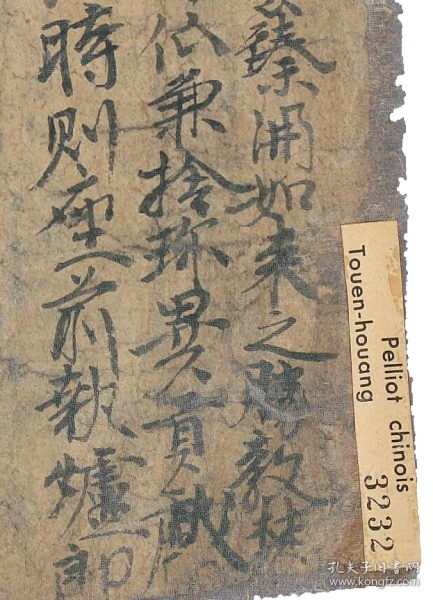 臻湧如来之勝教
低兼捨珎異貢
時則座前執爐郎
Pelliot chinois
Touen-houang
3232
孔夫子旧书网
www.kongfz.com